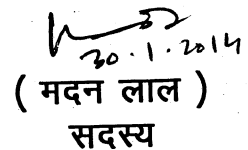 30.1.2014
( मदन लाल )
सदस्य